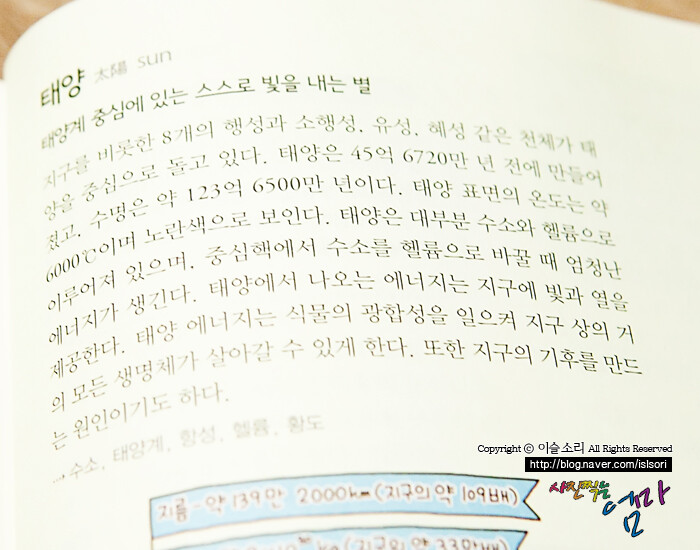 태양 太陽 sun
태양계 중심에 있는 스스로 빛을 내는 별
지구를 비롯한 8개의 행성과 소행성, 유성, 혜성 같은 천체가 태
양을 중심으로 돌고 있다. 태양은 45억 6720만 년 전에 만들어
졌고, 수명은 약 123억 6500만 년이다. 태양 표면의 온도는 약
6000℃이며 노란색으로 보인다. 태양은 대부분 수소와 헬륨으로
이루어져 있으며, 중심핵에서 수소를 헬륨으로 바꿀 때 엄청난
에너지가 생긴다. 태양에서 나오는 에너지는 지구에 빛과 열을
제공한다. 태양 에너지는 식물의 광합성을 일으켜 지구 상의 거
의 모든 생명체가 살아갈 수 있게 한다. 또한 지구의 기후를 만드
는 원인이기도 하다.
수소, 태양계, 항성, 헬륨, 황도
Copyright ⓒ 이슬소리 All Rights Reserved
http://blog.naver.com/islsori
사진찍는 엄마
지름-약 139만 2000km (지구의 약 109배)
kg (지구의 약 33만배)